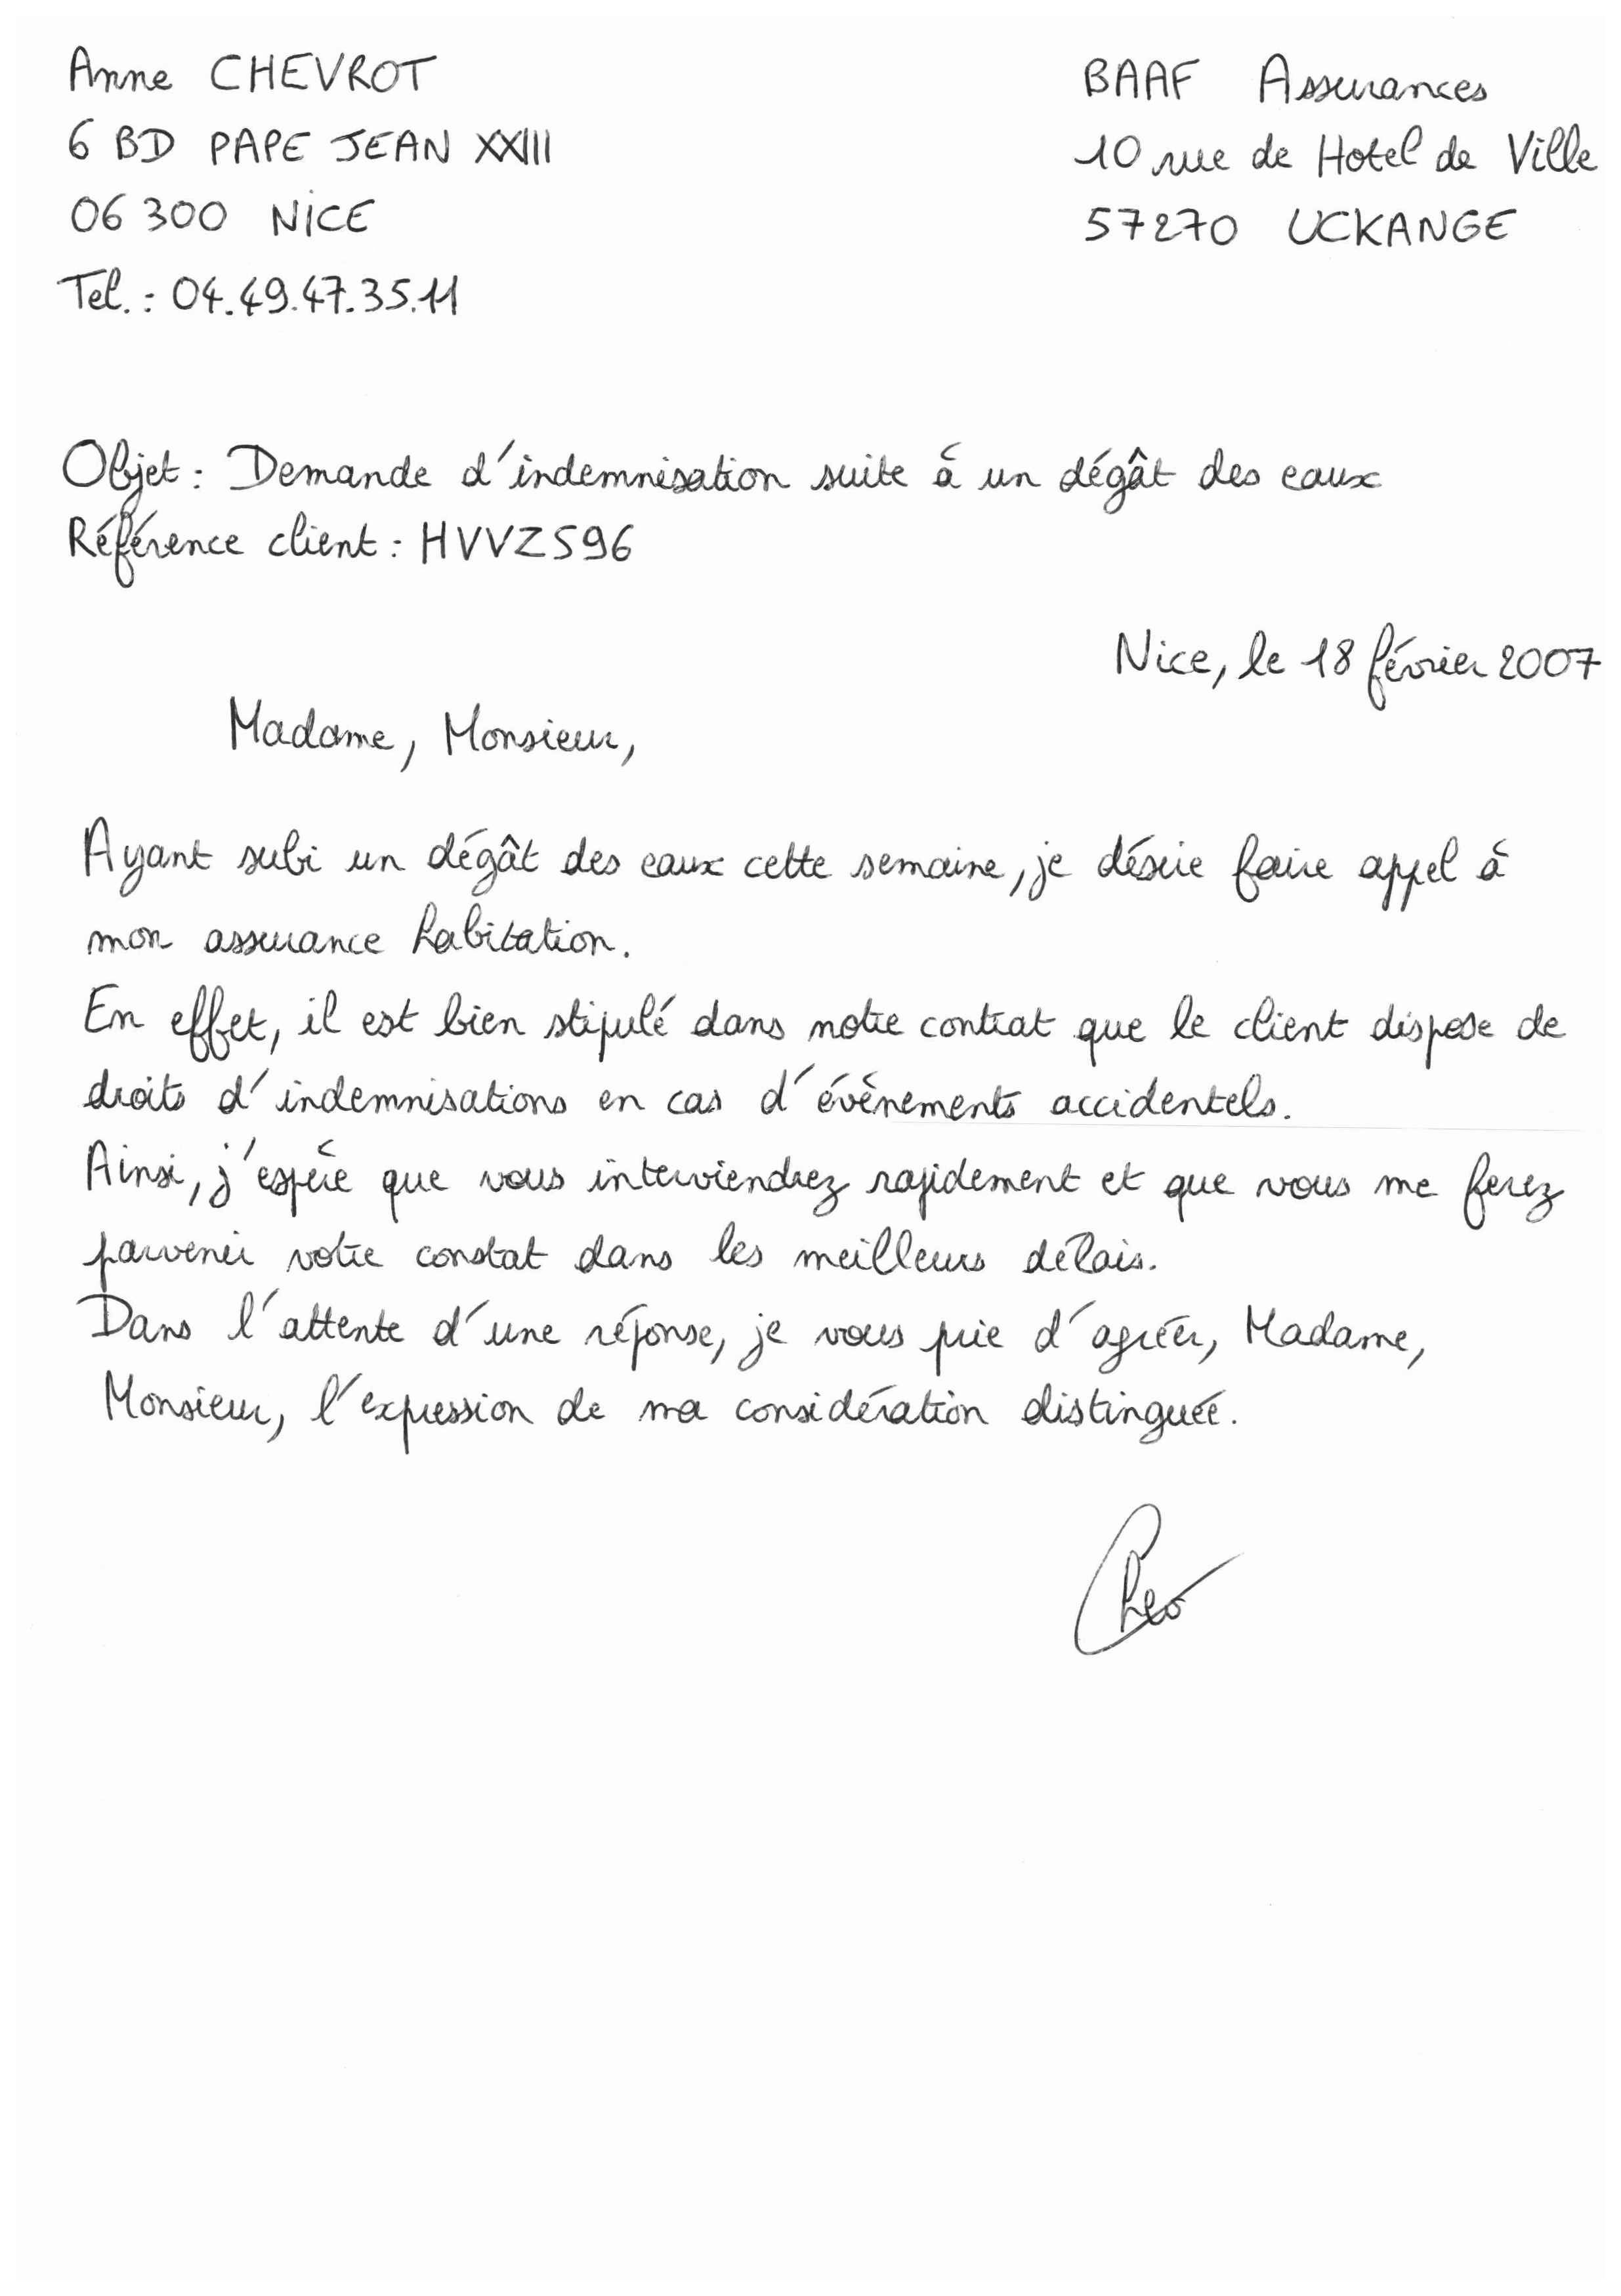 Anne CHEVROT
6 BD PAPE JEAN XXIII
06 300 NICE
Tel. : 04.49.47.35.11
BAAF Assurances
10 rue de Hotel de Ville
57270 UCKANGE
Objet : Demande d'indemnisation suite à un dégât des eaux
Référence client : HVVZ596
Nice, le 18 février 2007
Madame, Monsieur,
Ayant subi un dégât des eaux cette semaine, je désire faire appel à
mon assurance habitation.
En effet, il est bien stipulé dans notre contrat que le client dispose de
droits d'indemnisations en cas d'évènements accidentels.
Ainsi, j'espère que vous interviendrez rapidement et que vous me ferez
parvenir votre constat dans les meilleurs délais.
Dans l'attente d'une réponse, je vous prie d'agréer, Madame,
Monsieur, l'expression de ma considération distinguée.